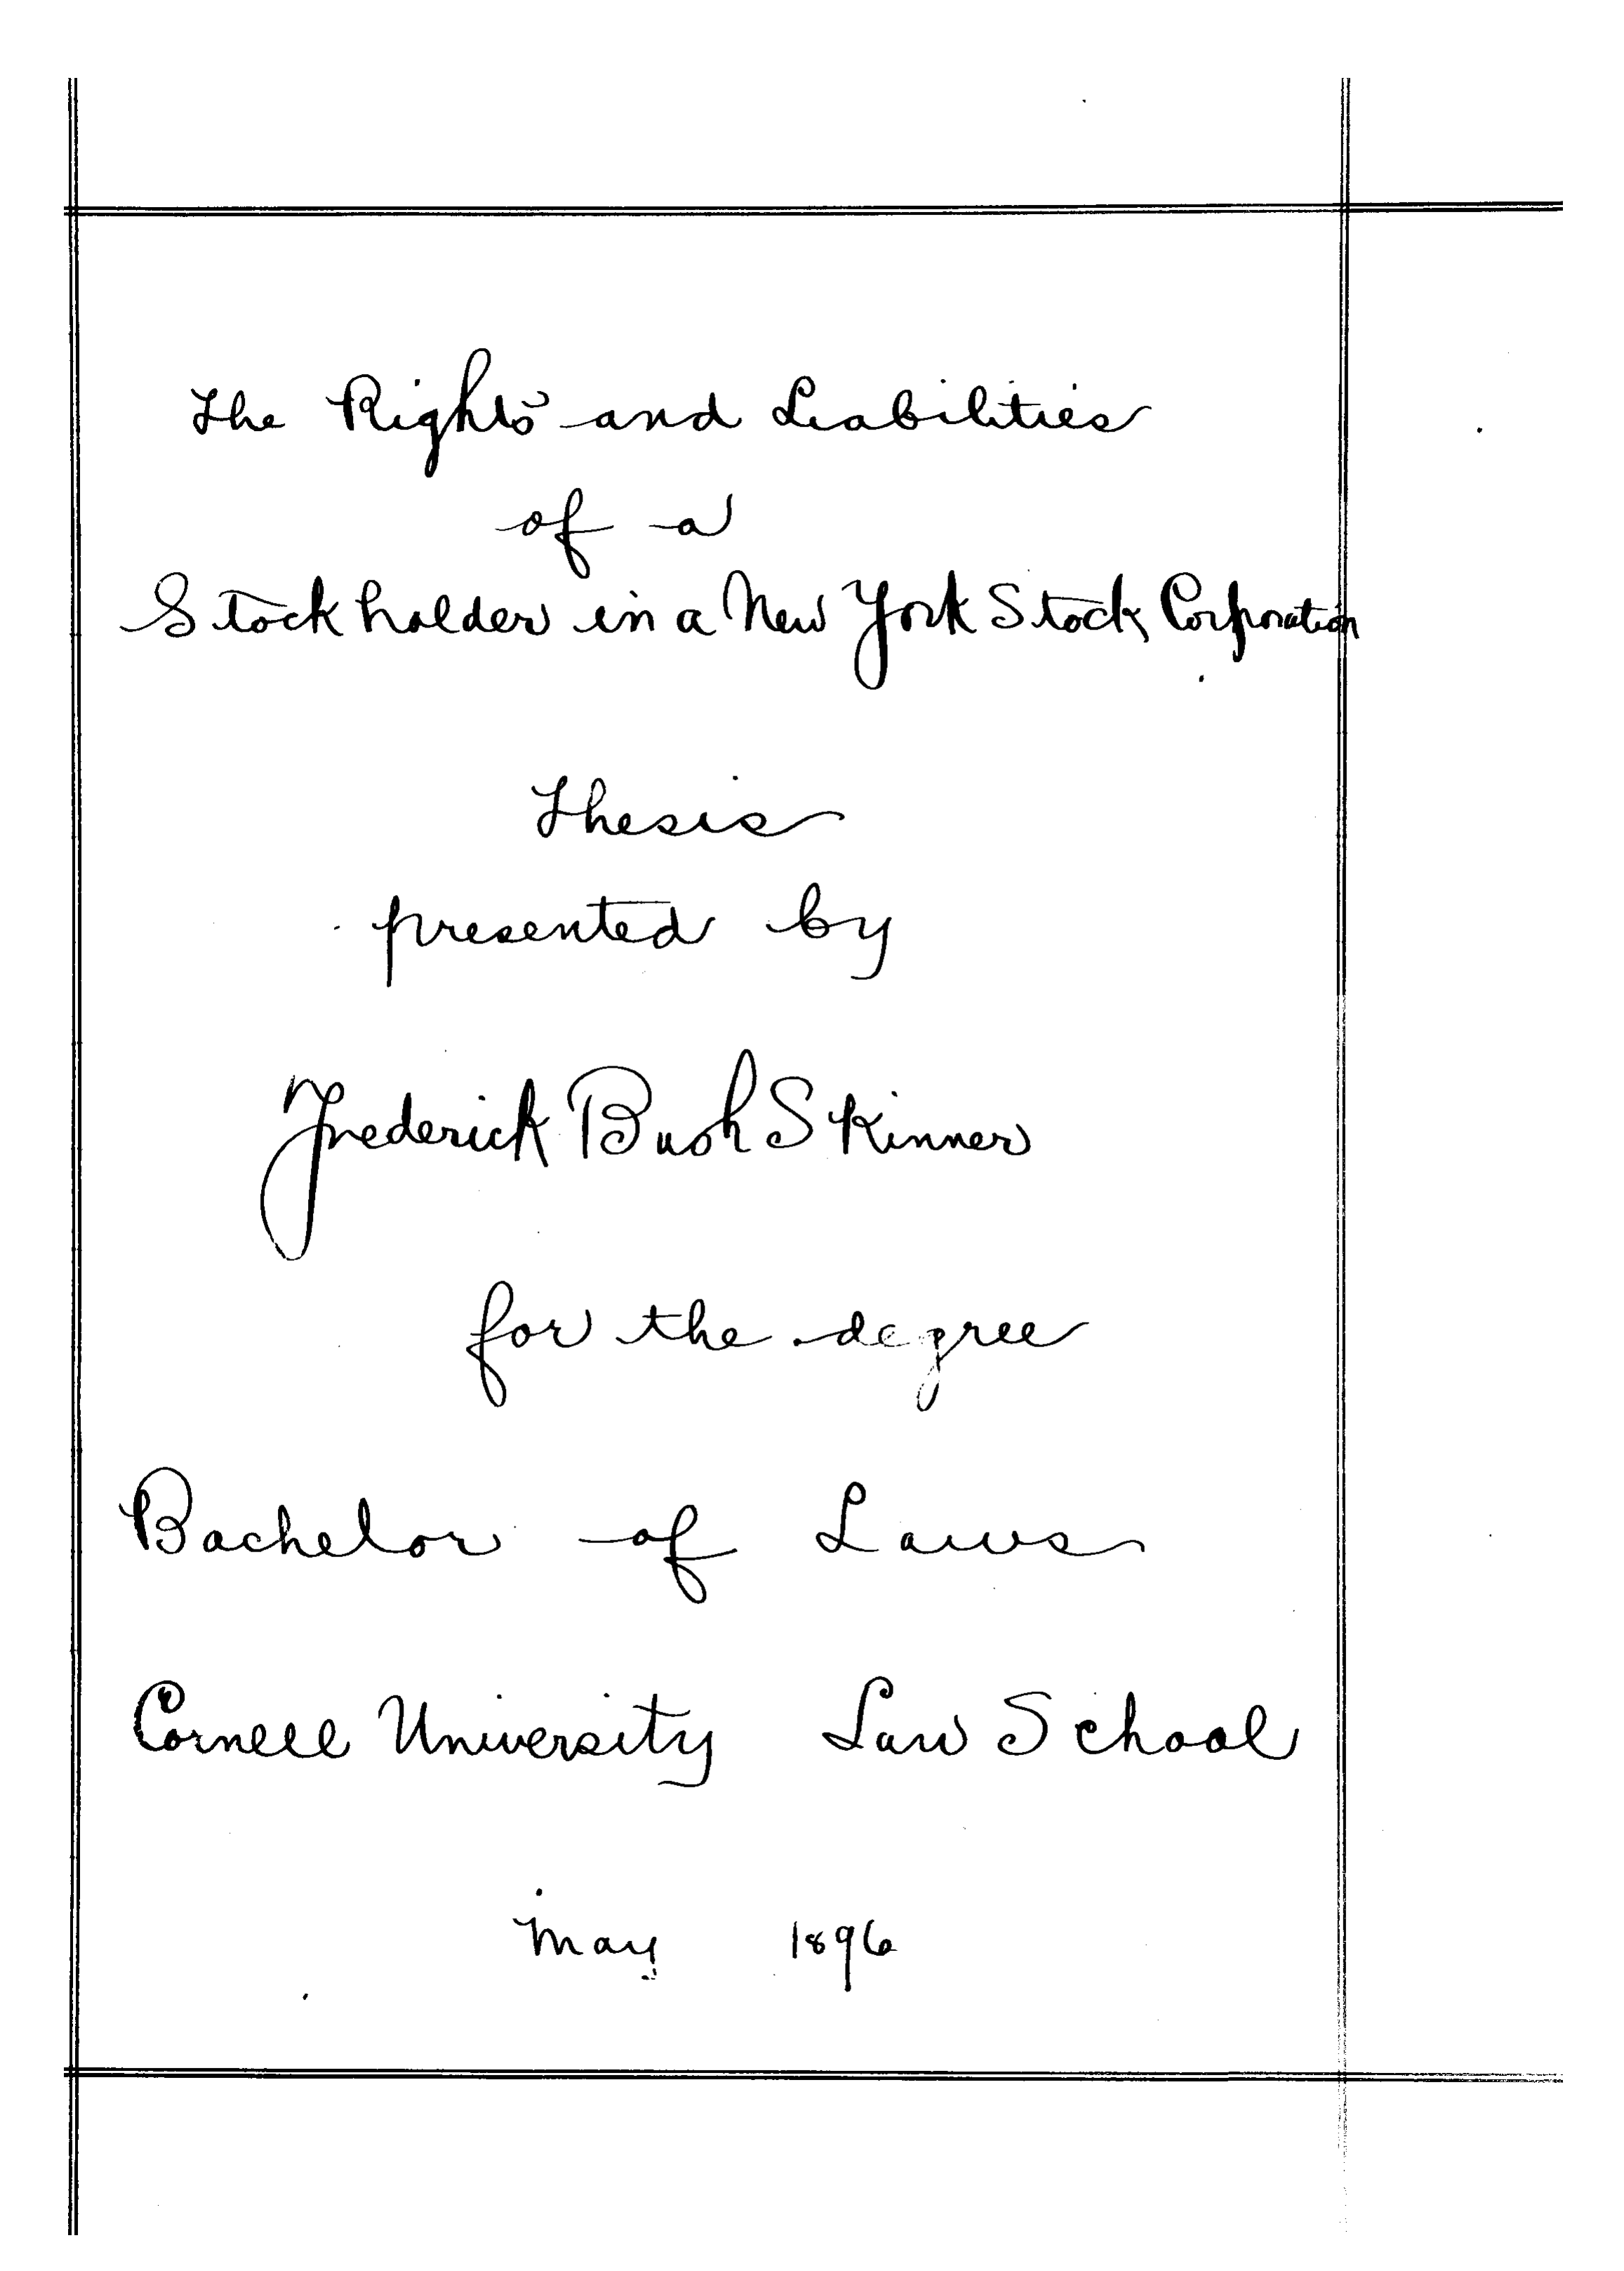 The Rights and Liabilities
of a
Stockholder in a New York Stock Corporation
Thesis
presented by
Frederick Bush Skinner
for the degree
Bachelor of Laws
Cornell University Law School
May 1896